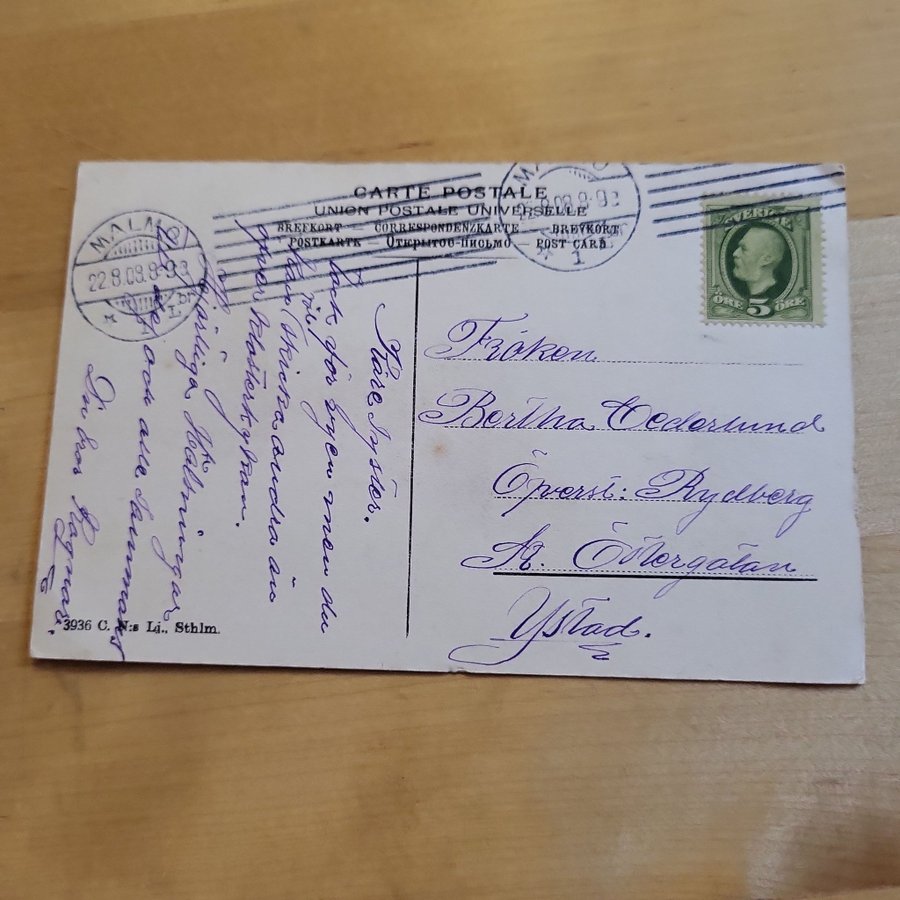 CARTE POSTALE
UNION POSTALE UNIVERSELLE
BREFKORT — CORRESPONDENZKARTE — BREVKORT
POSTKARTE — Открытое письмо — POST CARD
MALMÖ
22.8.08.8-9
1
MALMÖ
22.8.08.8-9
SVERIGE
ÖRE 5 ÖRE
Kära Syster.
Tack för vyen men du
kan skicka andra än
öfver klosterkyrkan.
Hjärtliga Hälsningar
och alle
Din bror Ragnar.
Fröken
Bertha Cederlund
Öfverst: Rydberg
St. Östergatan
Ystad.
3936 C. N:s Lj., Sthlm.